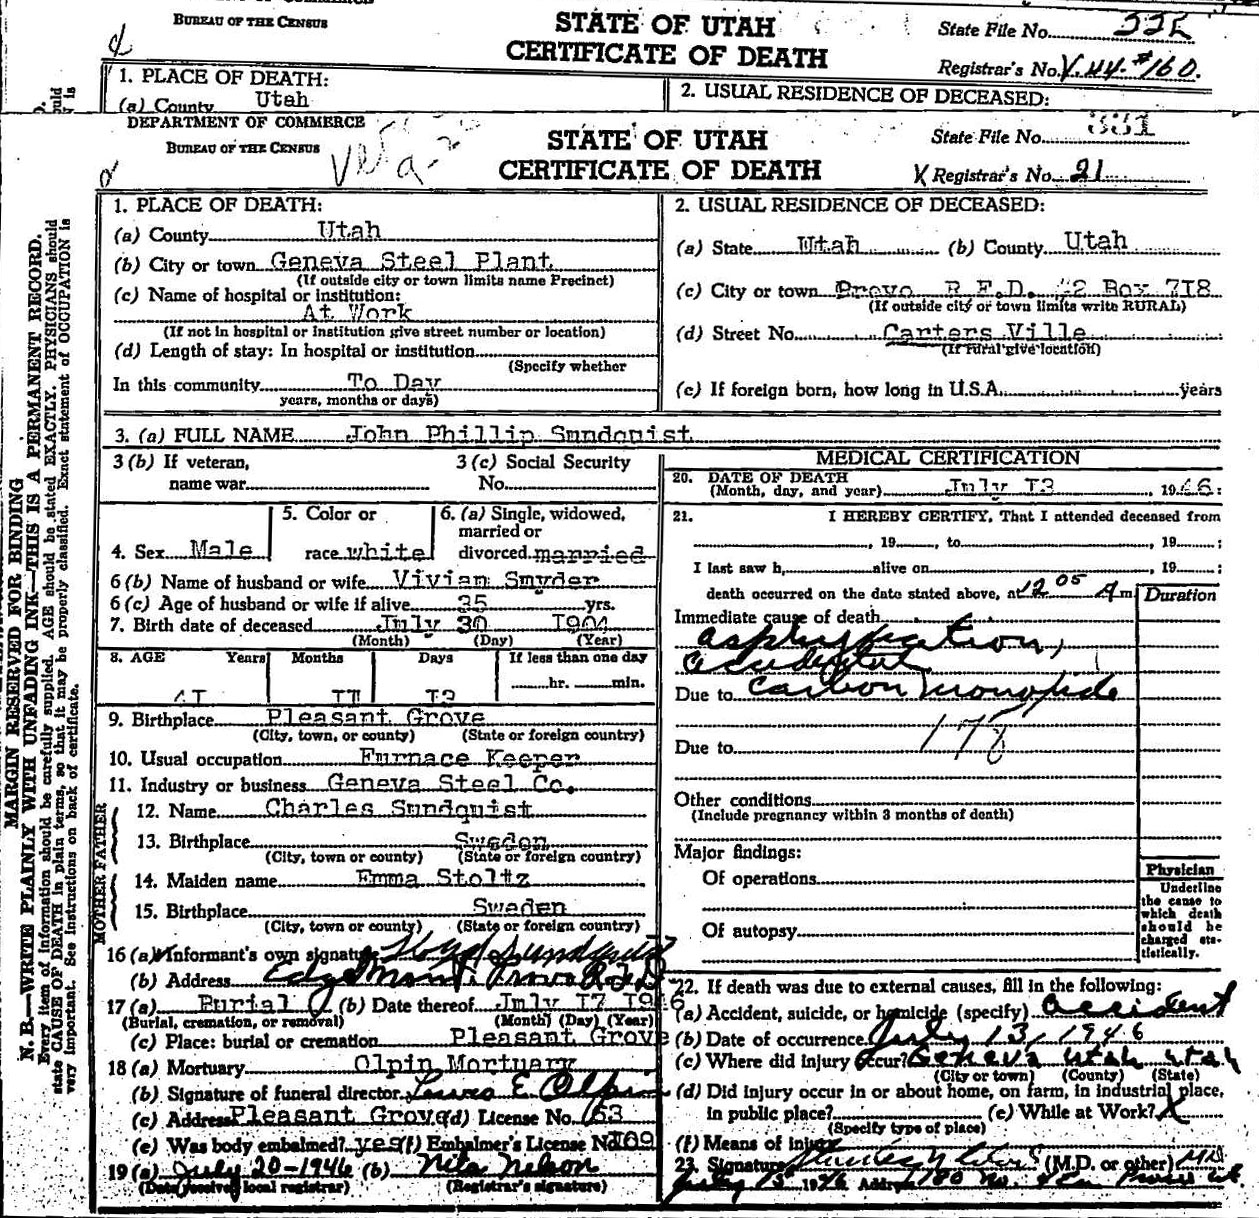 BUREAU OF THE CENSUS
STATE OF UTAH
CERTIFICATE OF DEATH
State File No.
Registrar's No. V. 44- #160.
1. PLACE OF DEATH:
(a) County Utah
2. USUAL RESIDENCE OF DECEASED:
DEPARTMENT OF COMMERCE
BUREAU OF THE CENSUS
STATE OF UTAH
CERTIFICATE OF DEATH
State File No. 331
X Registrar's No. 21
MARGIN RESERVED FOR BINDING
N. B.—WRITE PLAINLY WITH UNFADING INK—THIS IS A PERMANENT RECORD.
Every item of information should be carefully supplied. AGE should be stated EXACTLY. PHYSICIANS should
state CAUSE OF DEATH in plain terms, so that it may be properly classified. Exact statement of OCCUPATION is
very important. See instructions on back of certificate.
1. PLACE OF DEATH:
(a) County Utah
(b) City or town Geneva Steel Plant
(If outside city or town limits name Precinct)
(c) Name of hospital or institution:
At Work
(If not in hospital or institution give street number or location)
(d) Length of stay: In hospital or institution
(Specify whether
In this community To Day
years, months or days)
2. USUAL RESIDENCE OF DECEASED:
(a) State Utah (b) County Utah
(c) City or town Provo R.F.D. #2 Box 718
(If outside city or town limits write RURAL)
(d) Street No. Carters Ville
(If rural give location)
(e) If foreign born, how long in U.S.A. years
3. (a) FULL NAME John Phillip Sundquist
3 (b) If veteran,
name war
3 (c) Social Security
No.
4. Sex Male
5. Color or
race white
6. (a) Single, widowed,
married or
divorced married
6 (b) Name of husband or wife Vivian Snyder
6 (c) Age of husband or wife if alive 35 yrs.
7. Birth date of deceased July 30 1904
(Month) (Day) (Year)
8. AGE Years Months Days If less than one day
41 11 13 hr. min.
9. Birthplace Pleasant Grove
(City, town, or county) (State or foreign country)
10. Usual occupation Furnace Keeper
11. Industry or business Geneva Steel Co.
FATHER
12. Name Charles Sundquist
13. Birthplace Sweden
(City, town or county) (State or foreign country)
MOTHER
14. Maiden name Emma Stoltz
15. Birthplace Sweden
(City, town or county) (State or foreign country)
16 (a) Informant's own signature Floyd Sundquist
(b) Address Edgemont, Provo R.F.D.
17 (a) Burial (b) Date thereof July 17 1946
(Burial, cremation, or removal) (Month) (Day) (Year)
(c) Place: burial or cremation Pleasant Grove
18 (a) Mortuary Olpin Mortuary
(b) Signature of funeral director Lewis E Olpin
(c) Address Pleasant Grove (d) License No. 63
(e) Was body embalmed? yes (f) Embalmer's License No. 109
19 (a) July 20-1946 (b) Nita Nelson
(Date received local registrar) (Registrar's signature)
MEDICAL CERTIFICATION
20. DATE OF DEATH
(Month, day, and year) July 13, 1946:
21. I HEREBY CERTIFY, That I attended deceased from
, 19 , to , 19 ;
I last saw h alive on , 19 ;
death occurred on the date stated above, at 12 05 A m.
Duration
Immediate cause of death
asphyxiation,
accidental
Due to carbon monoxide
178
Due to
Other conditions
(Include pregnancy within 3 months of death)
Major findings:
Of operations
Of autopsy
Physician
Underline
the cause to
which death
should be
charged sta-
tistically.
22. If death was due to external causes, fill in the following:
(a) Accident, suicide, or homicide (specify) Accident
(b) Date of occurrence July 13, 1946
(c) Where did injury occur? Geneva Utah Utah
(City or town) (County) (State)
(d) Did injury occur in or about home, on farm, in industrial place,
in public place? (e) While at Work? X
(Specify type of place)
(f) Means of injury
23. Signature (M.D. or other) M.D.
July 15 1946 Address